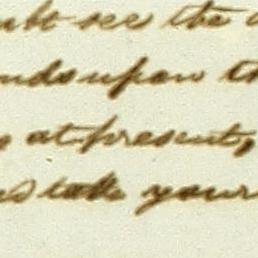 ubt see the
nds upon th
at present,
take your